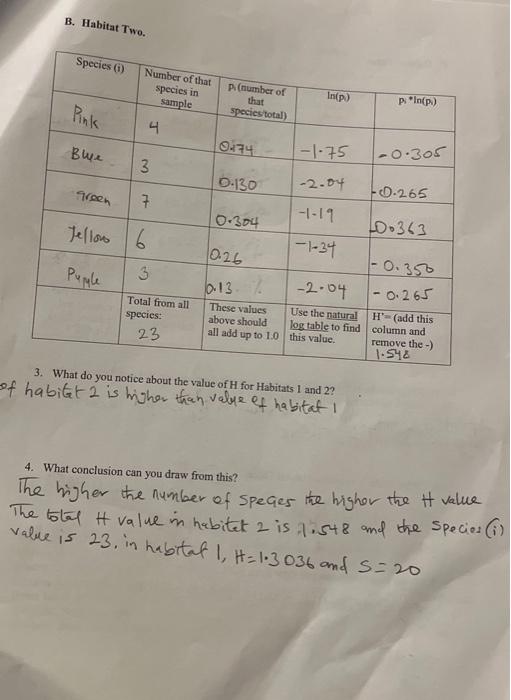 B. Habitat Two.
Species (i)
Number of that
species in
sample
pᵢ (number of
that
species/total)
ln(pᵢ)
pᵢ *ln(pᵢ)
Pink 4 0.174 -1.75 -0.305
Blue 3 0.130 -2.04 -0.265
Green 7 0.304 -1.19 -0.363
Yellow 6 0.26 -1.34 -0.350
Purple 3 0.13 -2.04 -0.265
Total from all
species:
23
These values
above should
all add up to 1.0
Use the natural
log table to find
this value.
H'= (add this
column and
remove the -)
1.548
3. What do you notice about the value of H for Habitats 1 and 2?
of habitat 2 is higher than value of habitat 1
4. What conclusion can you draw from this?
The higher the number of speges the higher the H value
The total H value in habitat 2 is 1.548 and the species (i)
value is 23, in habitat 1, H=1.3036 and S=20